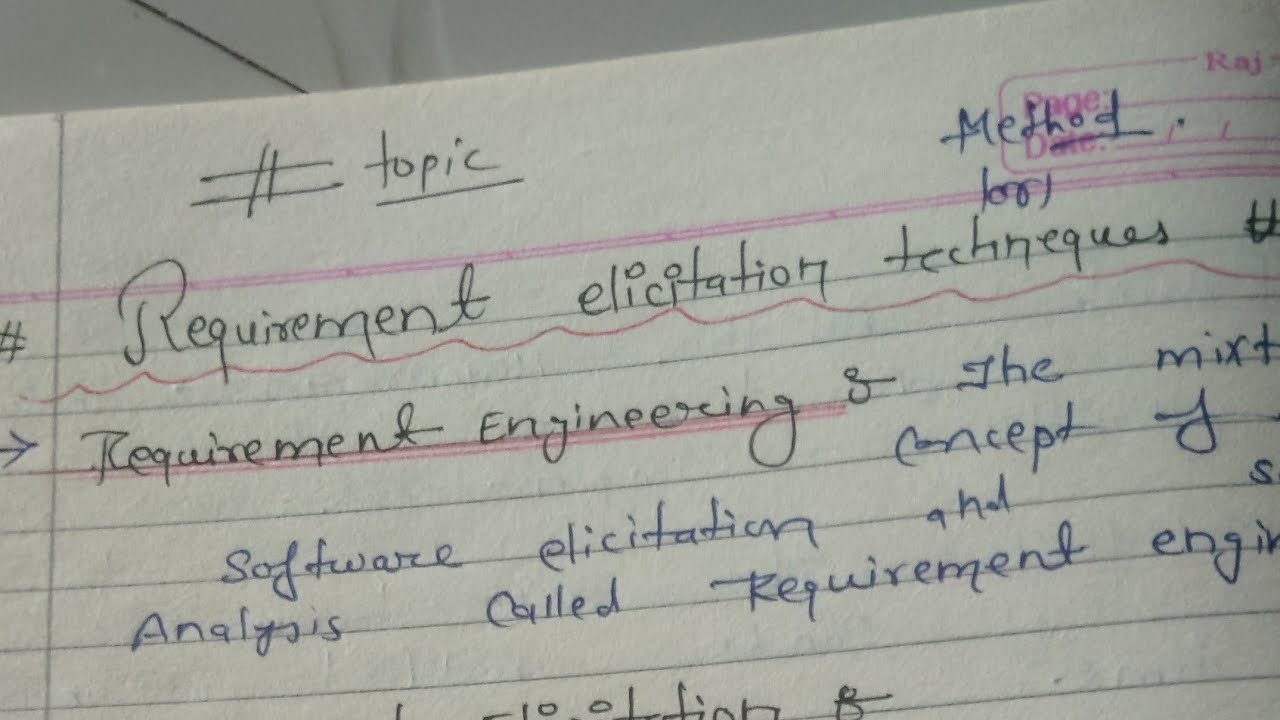 Raj
Page:
Date:
# topic
Method.
(or)
# Requirement elicitation techneques #
→ Requirement Engineering :- The mixt
concept of
Software elicitation and s
Analysis called Requirement engin